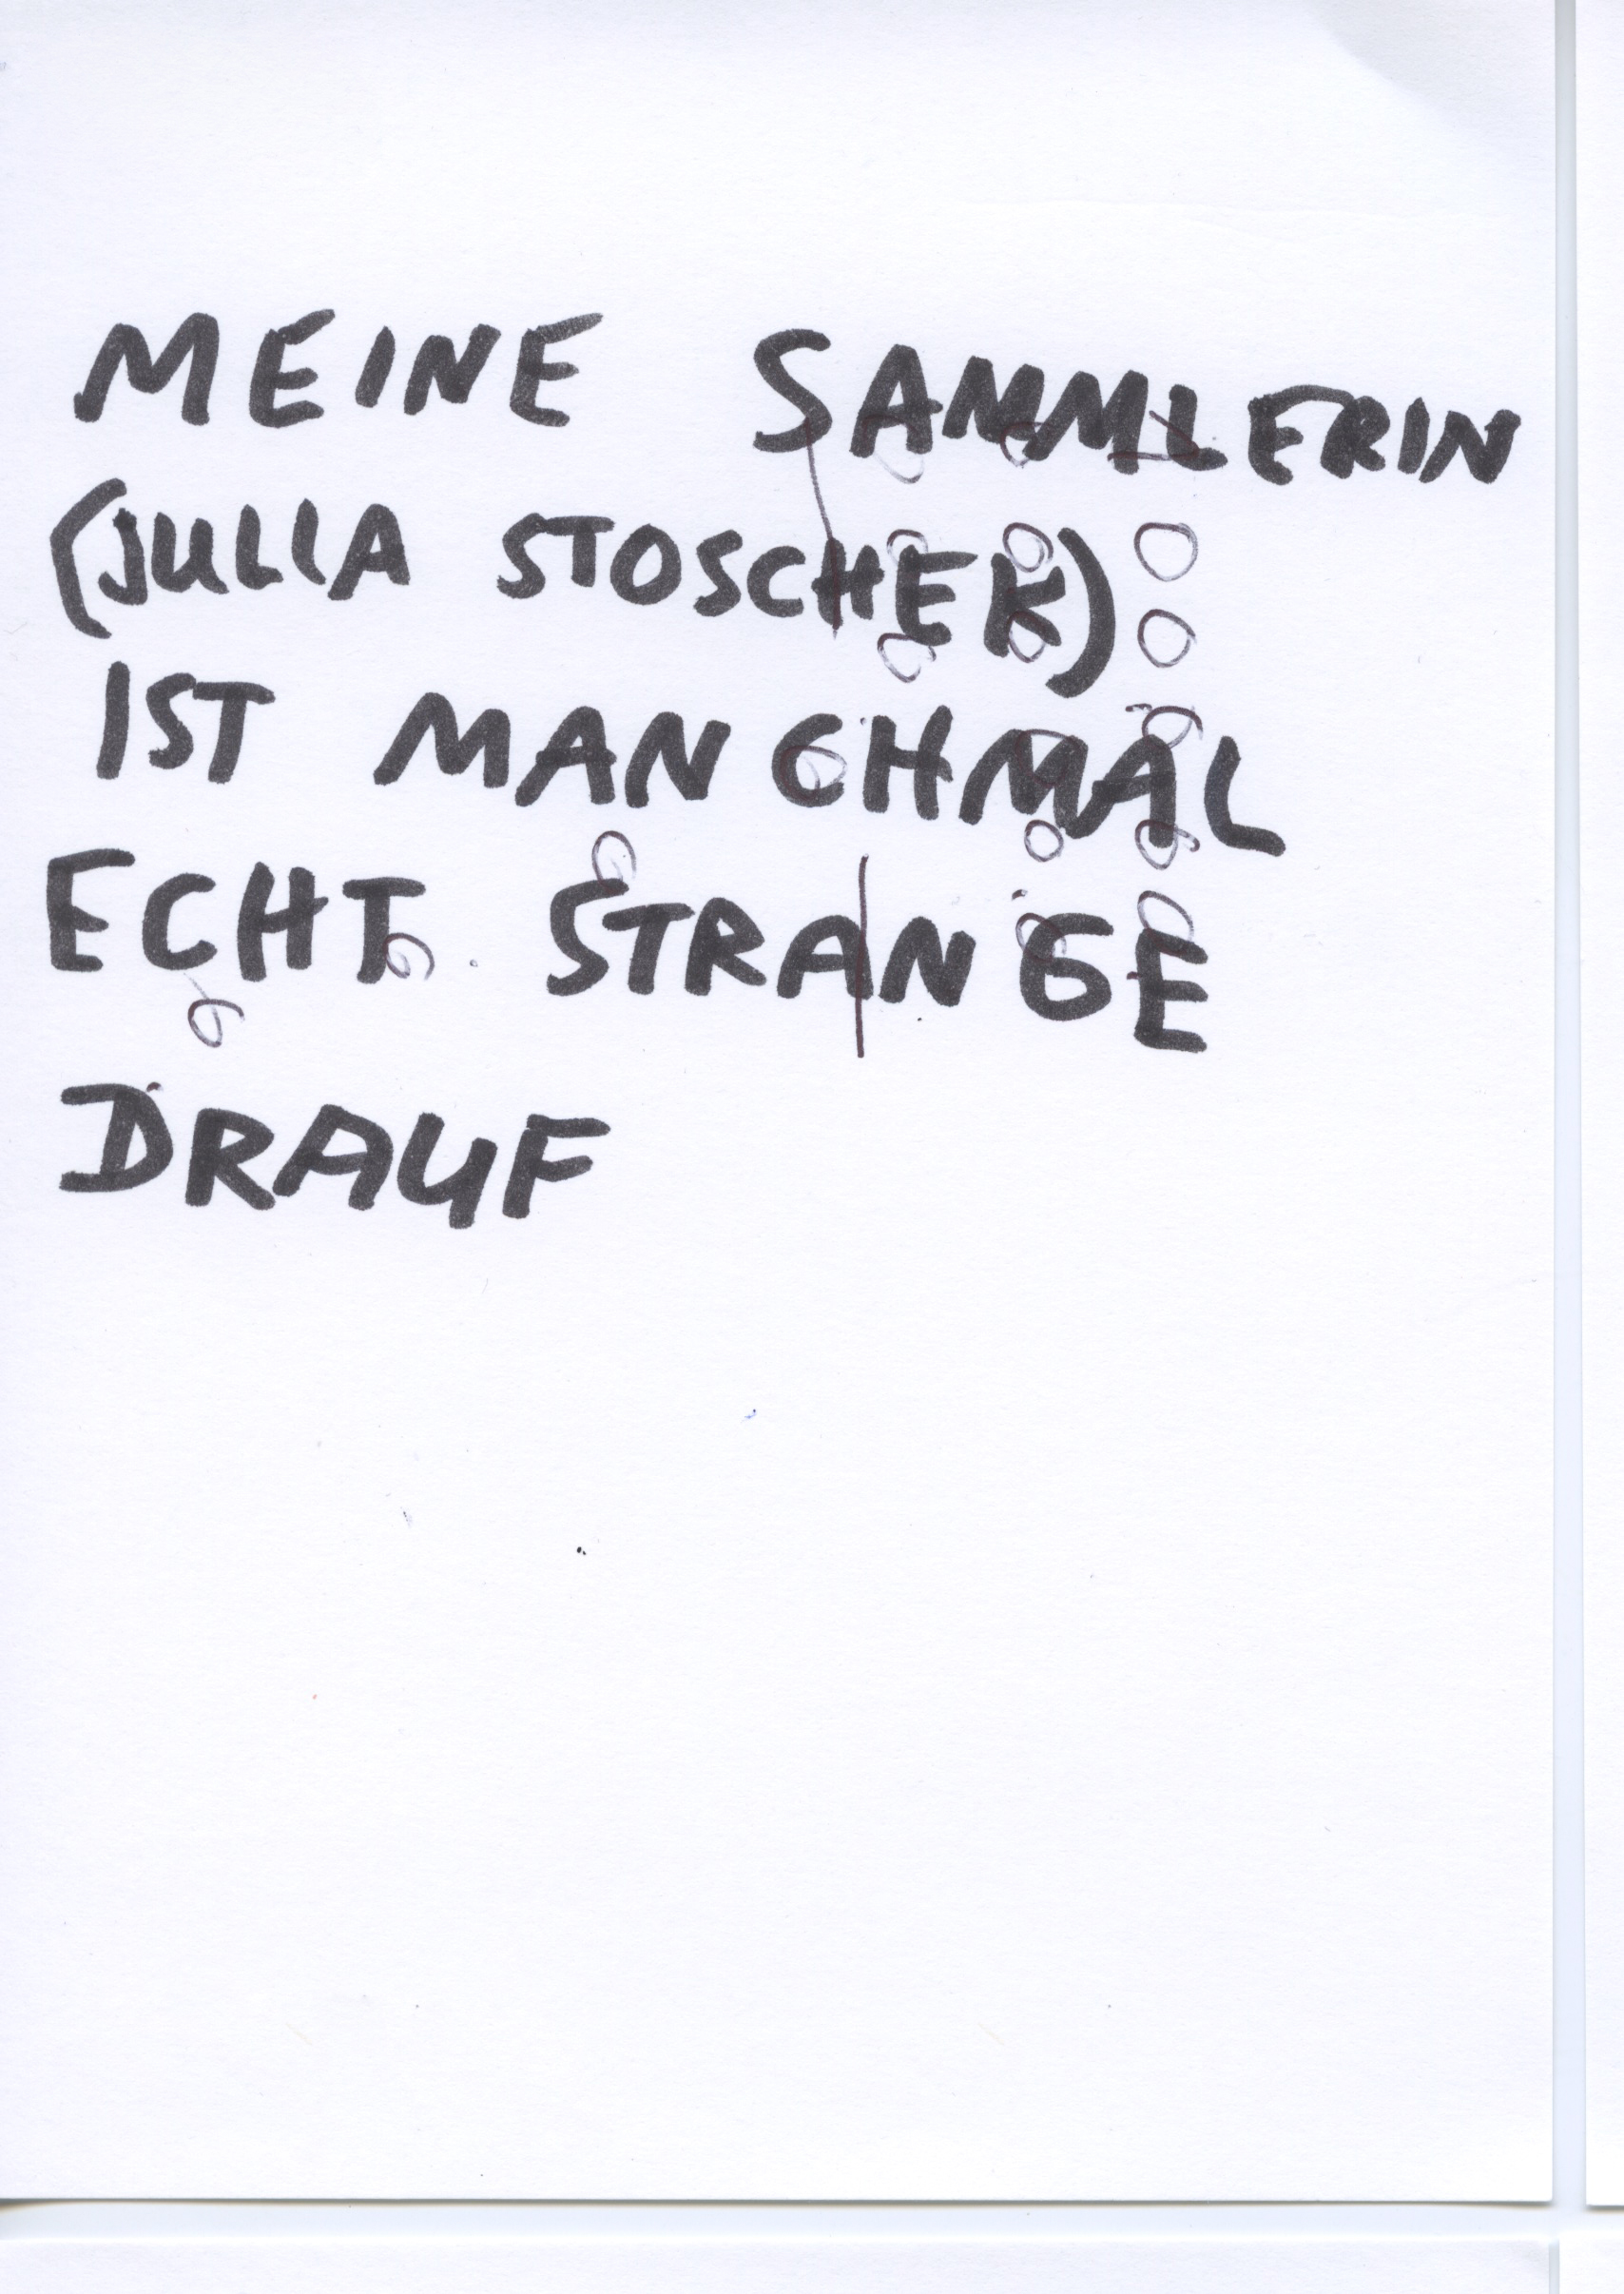 MEINE SAMMLERIN
(JULIA STOSCHEK)
IST MANCHMAL
ECHT STRANGE
DRAUF